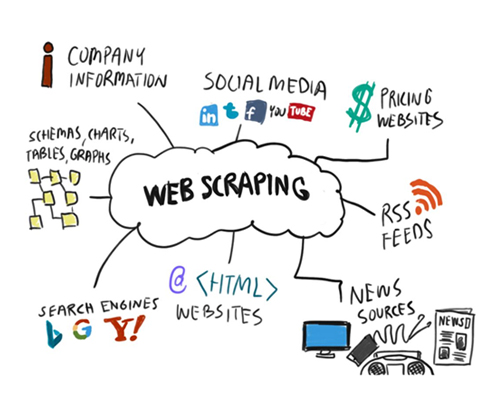 COMPANY
INFORMATION
SOCIAL MEDIA
in t f YOU TUBE
$ PRICING
WEBSITES
SCHEMAS, CHARTS,
TABLES, GRAPHS
WEB SCRAPING
RSS
FEEDS
SEARCH ENGINES
b G Y!
@ <HTML>
WEBSITES
NEWS
SOURCES
NEWS